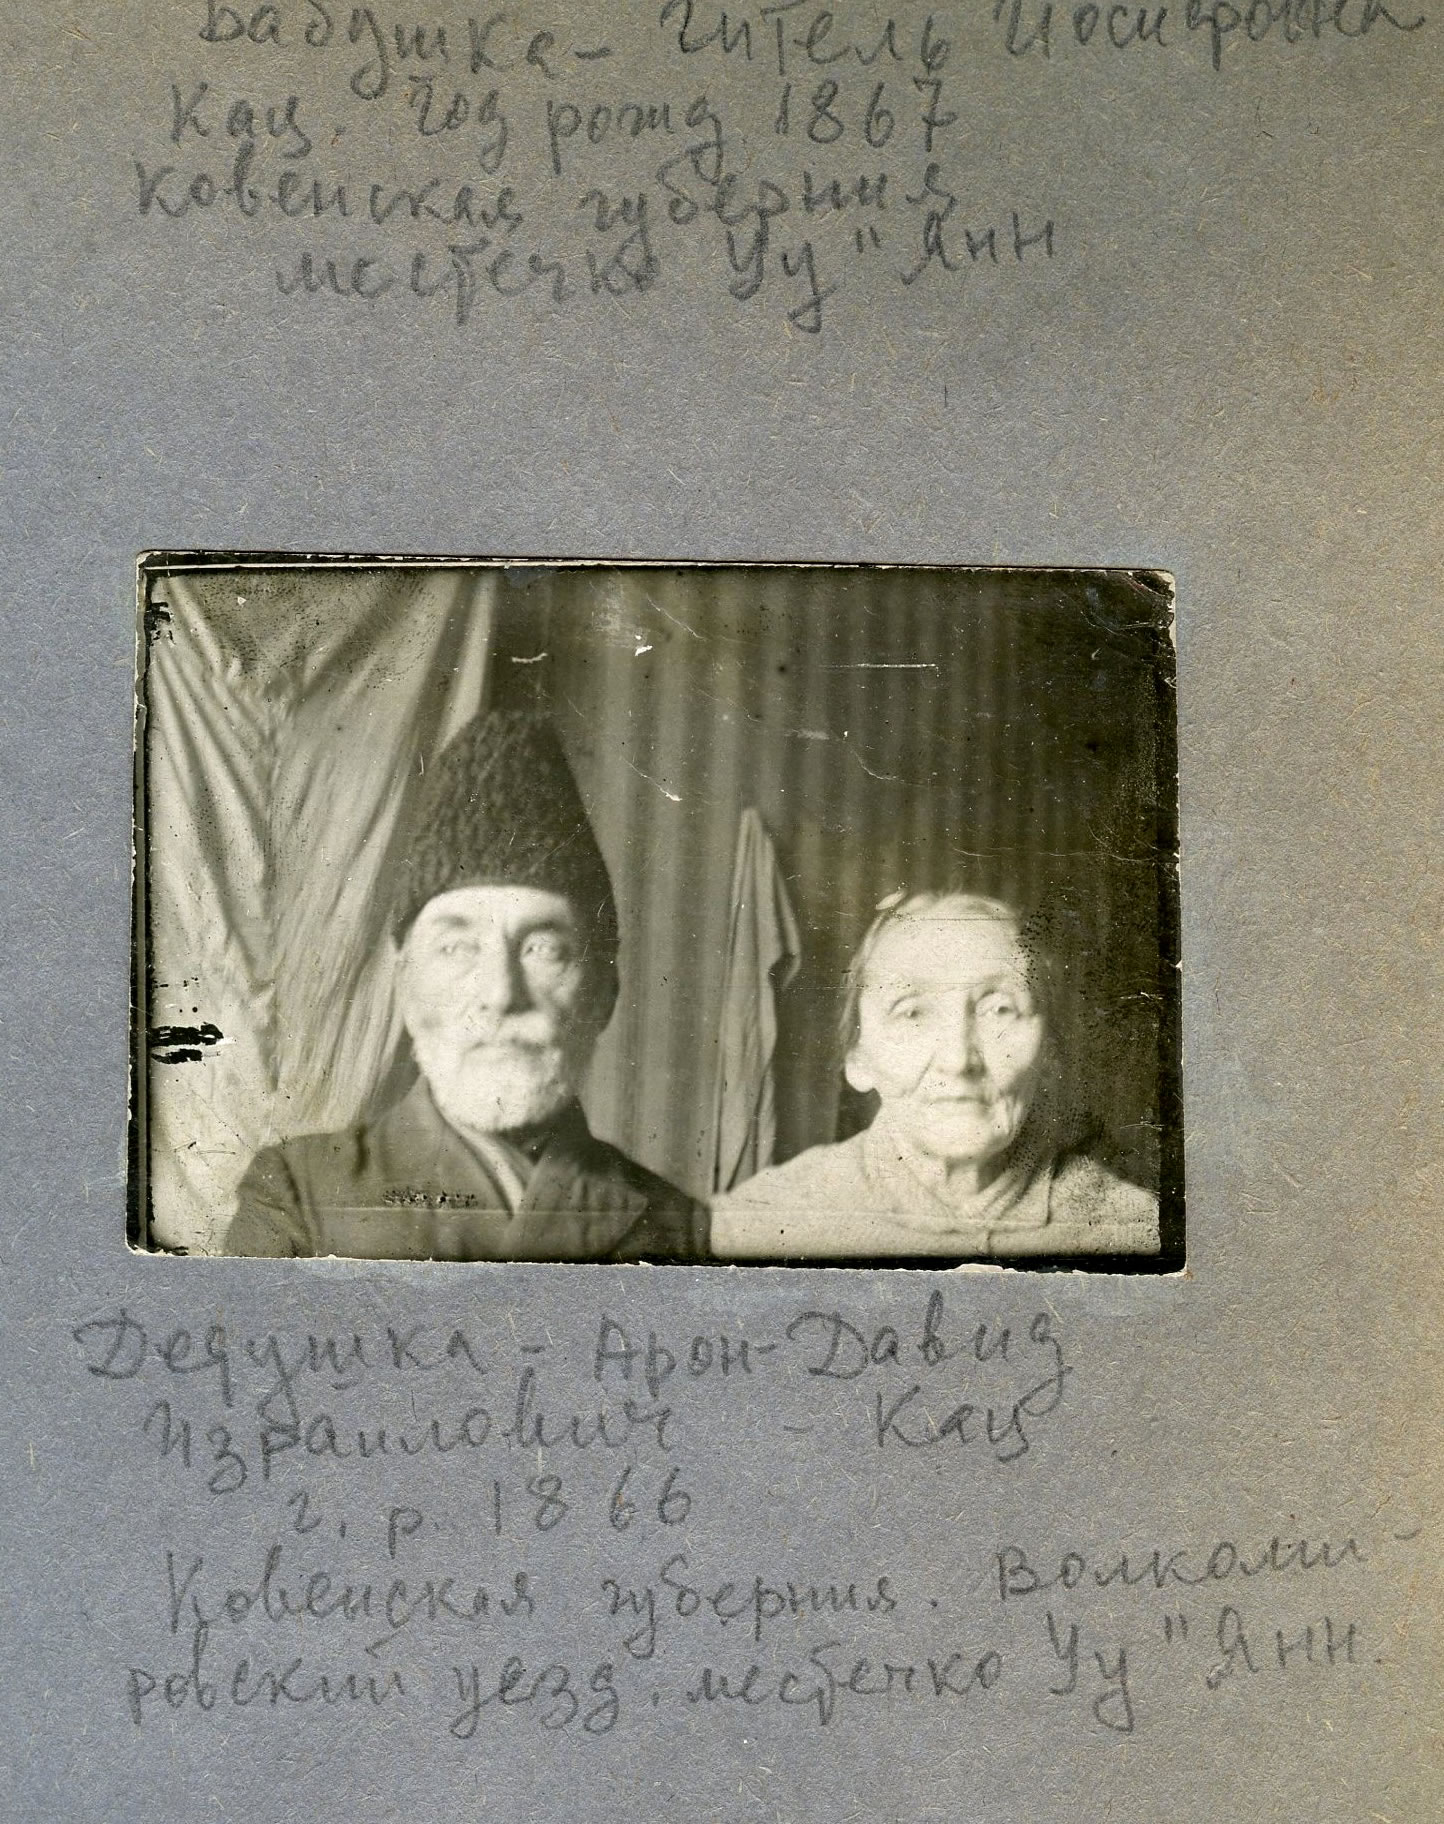 Бабушка - Гитель Иосифовна
Кац. Год рожд 1867
Ковенская губерния
местечко Уу" Янн
Дедушка - Арон-Давид
Израилович - Кац
г. р. 1866
Ковенская губерния. Волкоми-
ровский уезд. местечко Уу" Янн.